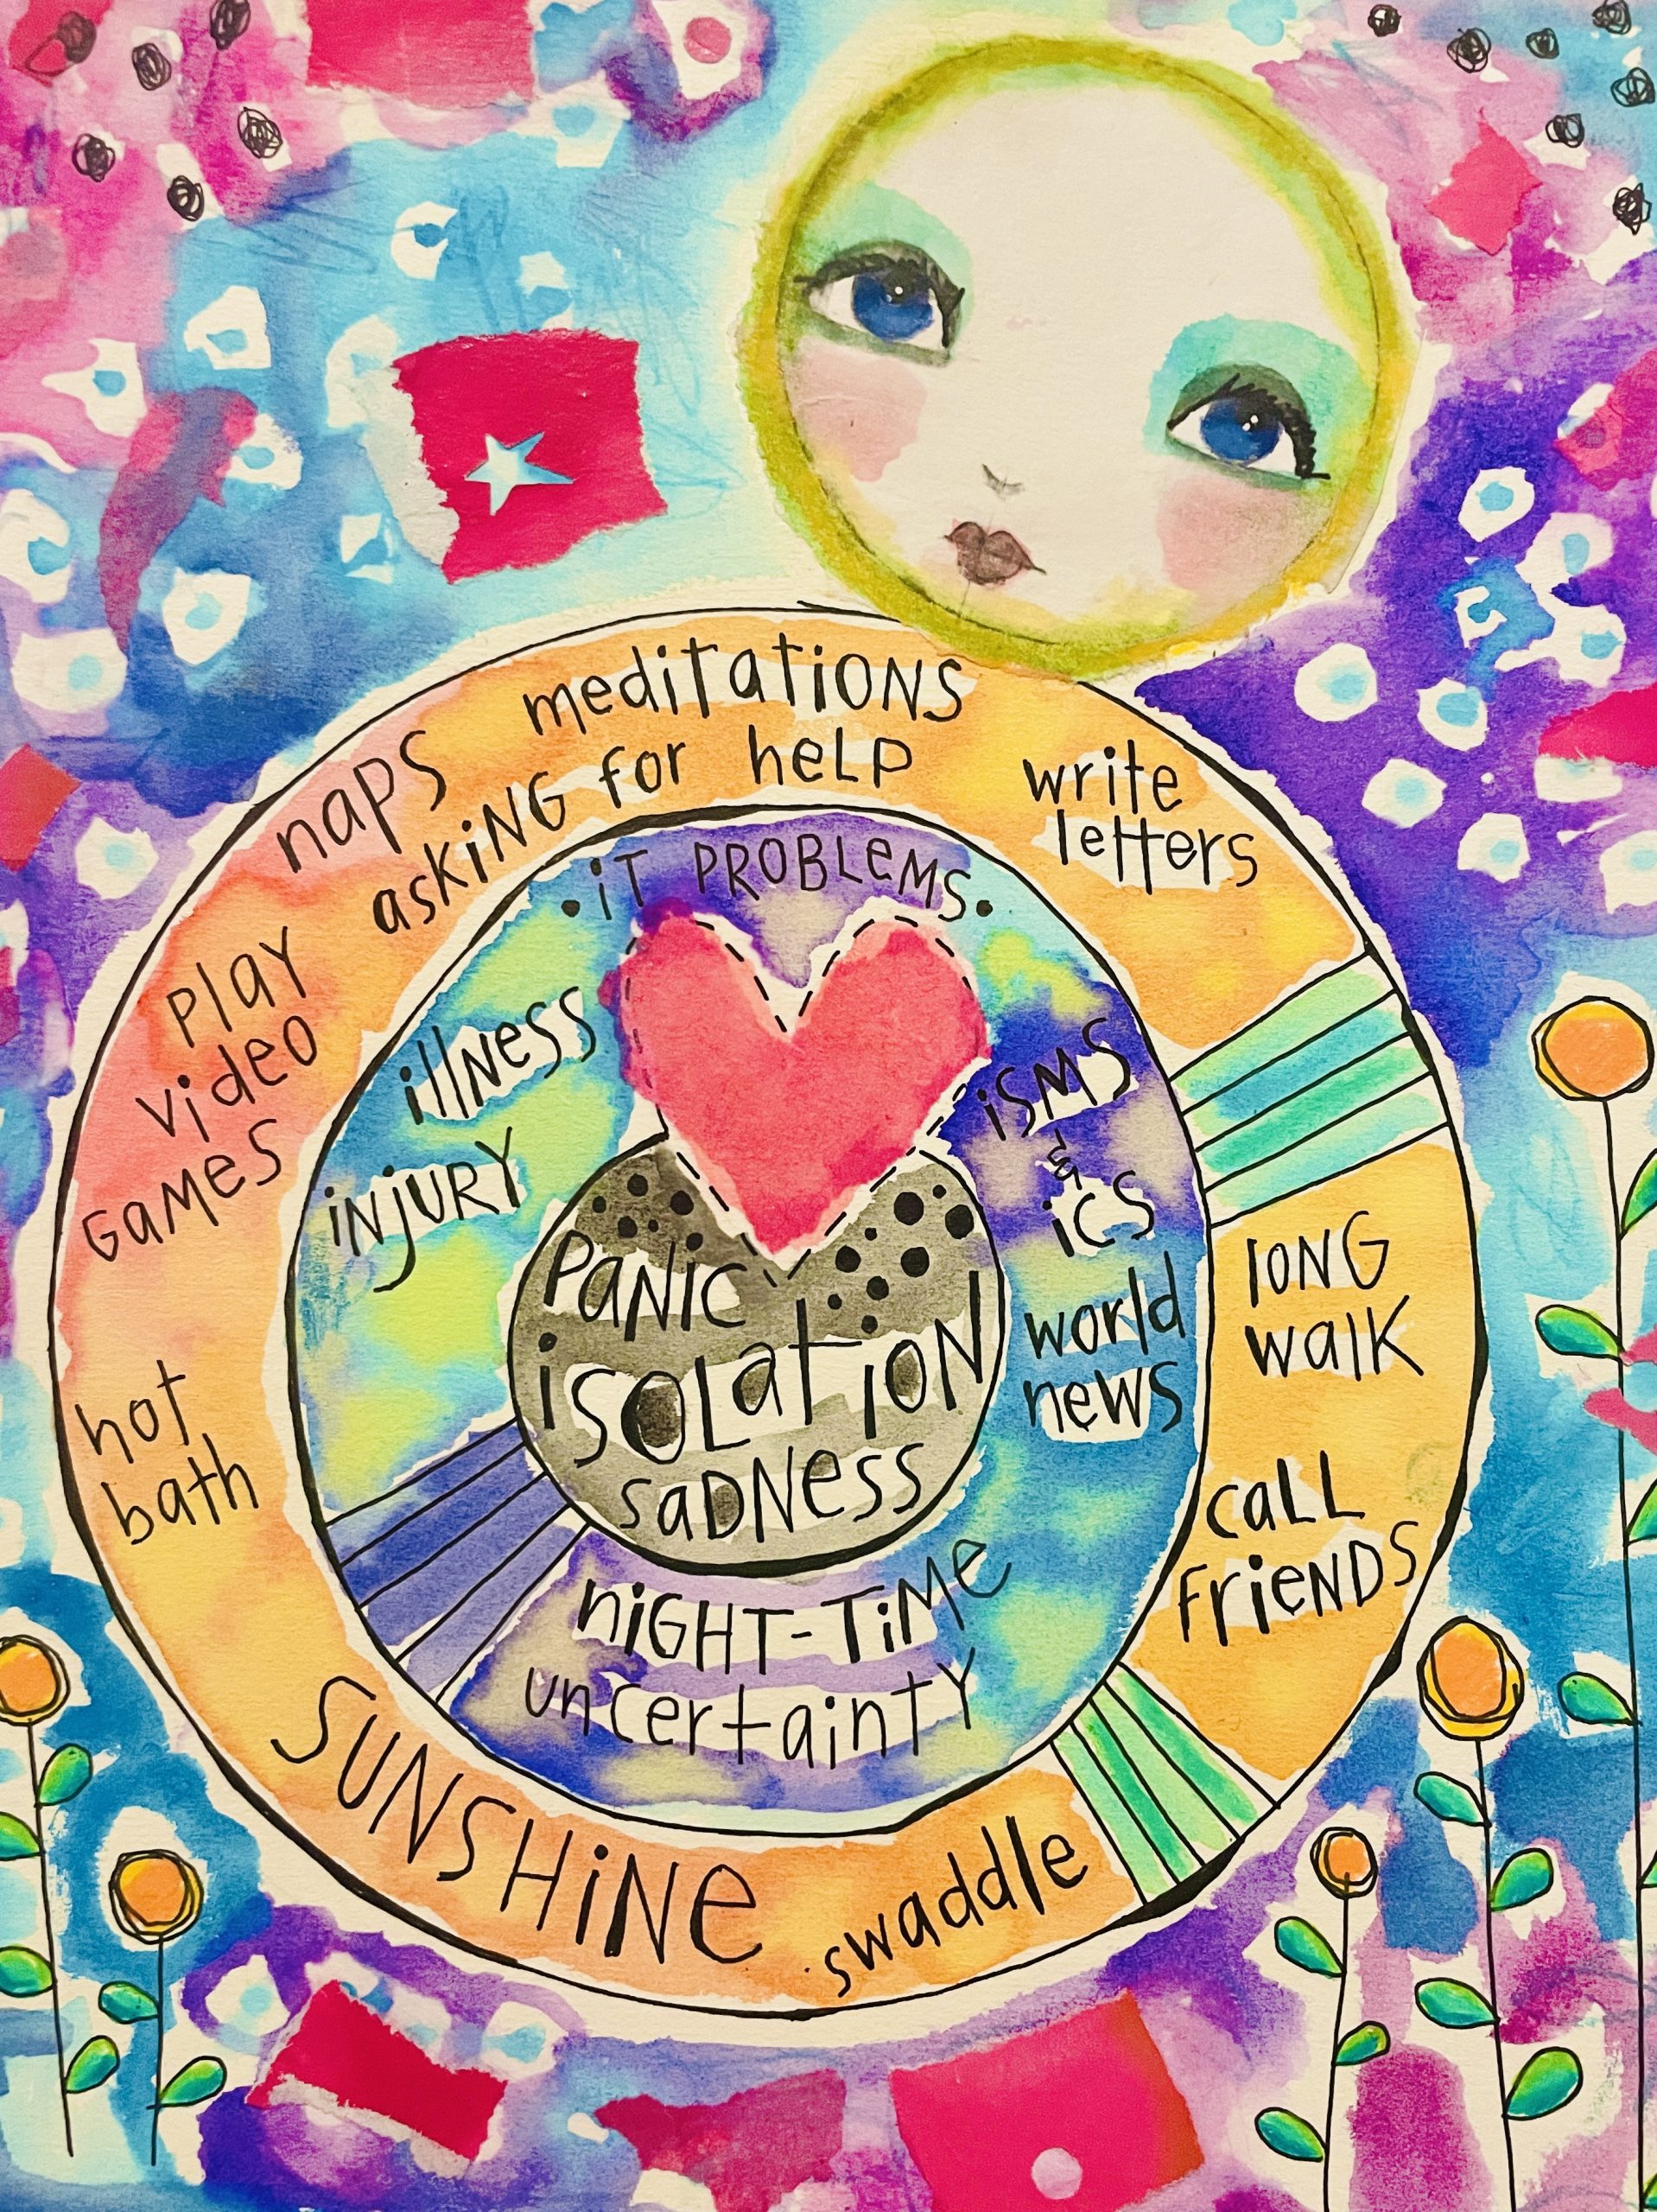 meditations
naps
asking for help
write
letters
play
video
games
hot
bath
SUNSHiNe
swaddle
call
friends
long
walk
• iT PROBLeMS •
illness
injury
isms
&
ics
world
news
night-time
uncertainty
panic
isolation
sadness